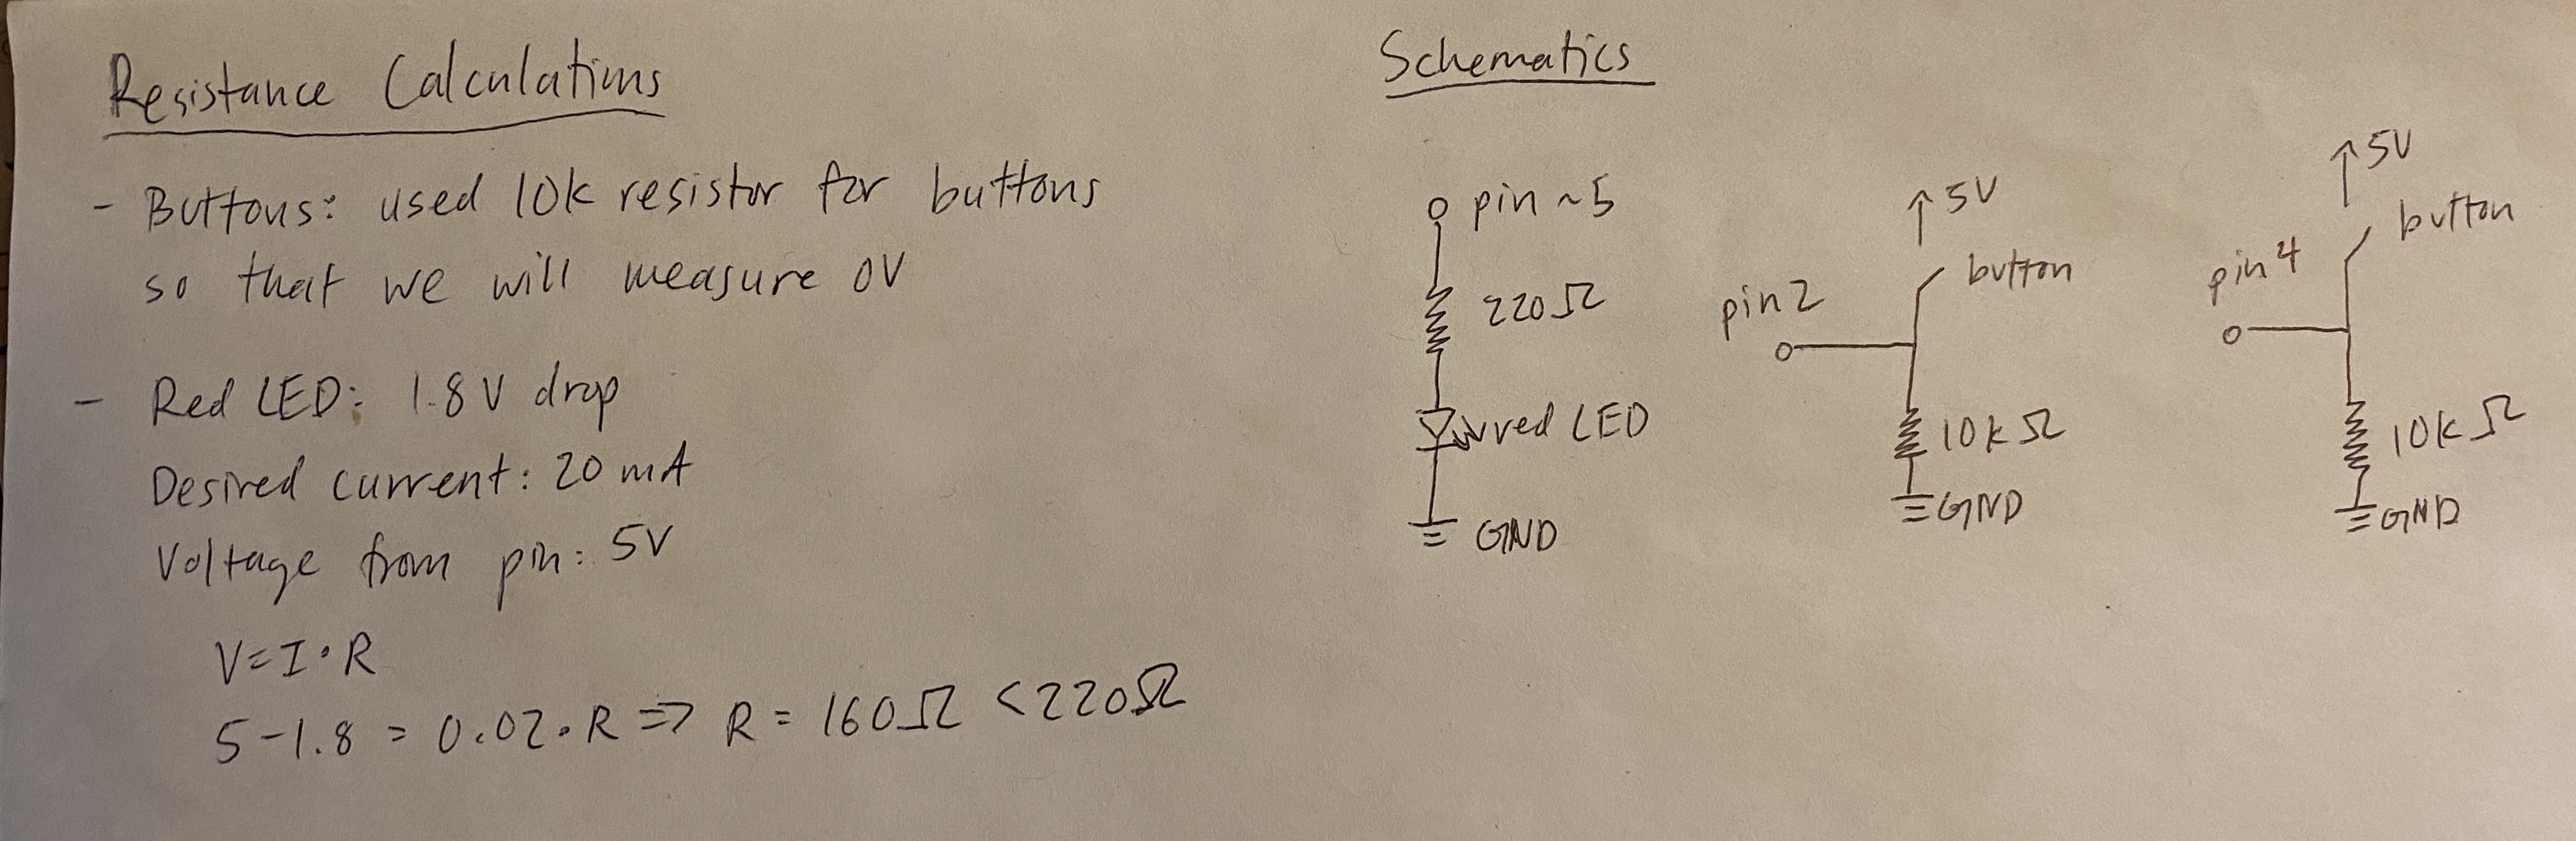 Resistance Calculations
- Buttons: used 10k resistor for buttons
so that we will measure 0V
- Red LED: 1.8V drop
Desired current: 20 mA
Voltage from pin: 5V
V=I·R
5-1.8 = 0.02·R => R = 160Ω < 220Ω
Schematics
pin ~5
220Ω
red LED
GND
5V
button
pin2
10kΩ
GND
5V
button
pin4
10kΩ
GND